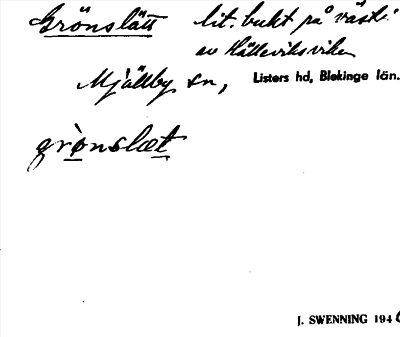 Grönslätt lit. bukt på västs.
av Hälleviksviken
Mjällby sn, Listers hd, Blekinge län.
grònslæt
J. SWENNING 194